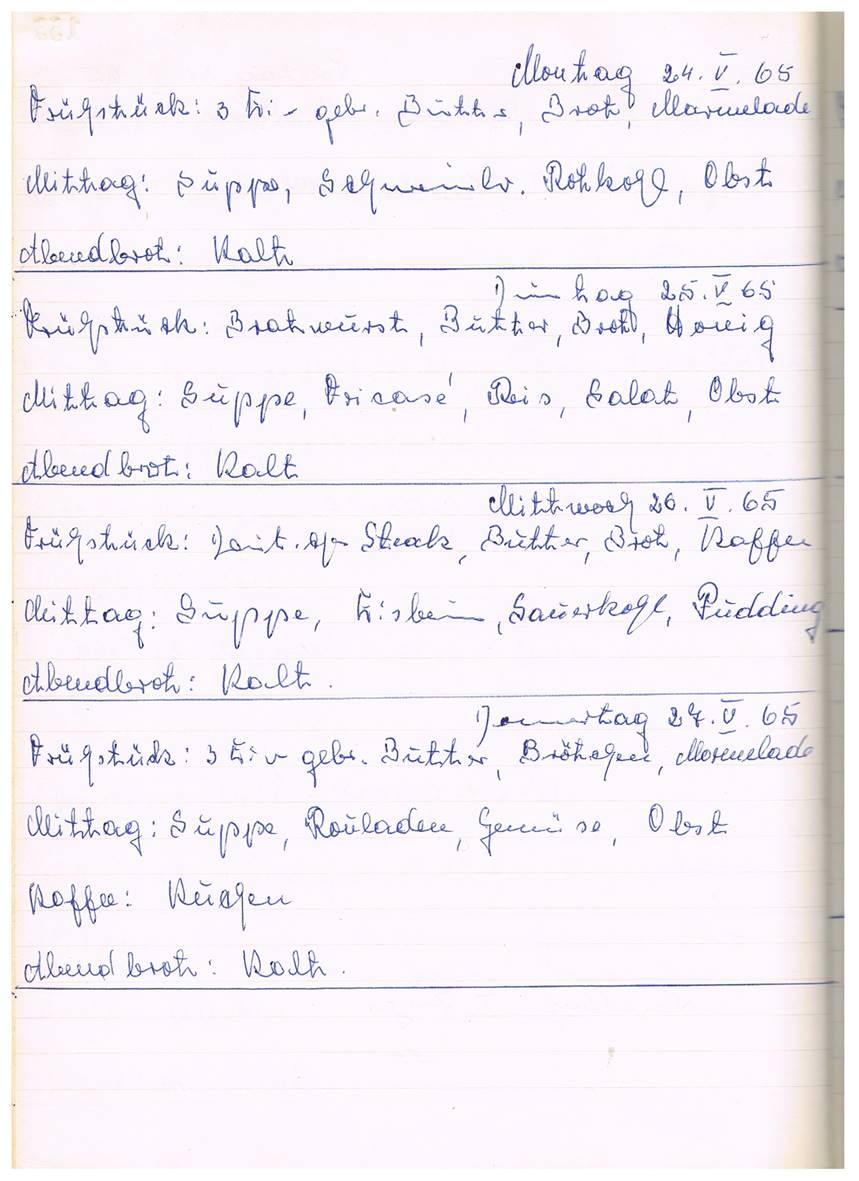 Montag 24. V. 65
Frühstück: 3 Eier gebr. Butter, Brot, Marmelade
Mittag: Suppe, Schweinbr. Rohkohl, Obst
Abendbrot: Kalt
Dinstag 25. V. 65
Frühstück: Bratwurst, Butter, Brot, Honig
Mittag: Suppe, Fricasé, Reis, Salat, Obst
Abendbrot: Kalt
Mittwoch 26. V. 65
Frühstück: Steak, Butter, Brot, Kaffee
Mittag: Suppe, Eisbein, Sauerkohl, Pudding
Abendbrot: Kalt.
Donnertag 27. V. 65
Frühstück: 3 Eier gebr. Butter, Brötchen, Marmelade
Mittag: Suppe, Rouladen, Gemüse, Obst
Kaffee: Kuchen
Abendbrot: Kalt.